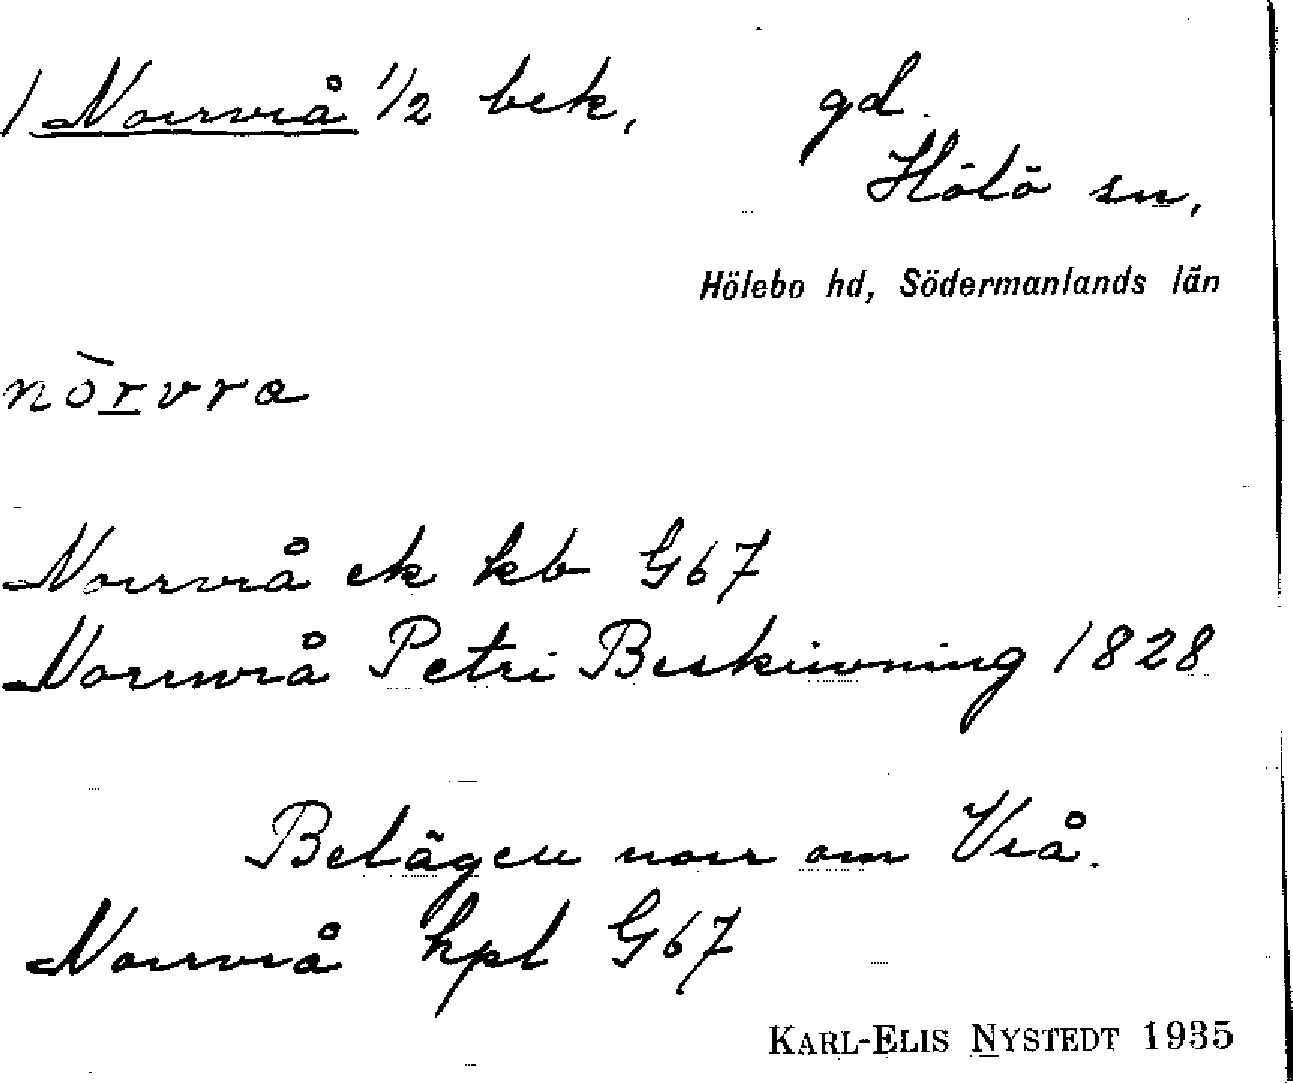 1 Norrvrå 1/2 bek, gd.
Hölö sn,
Hölebo hd, Södermanlands län
nòrvra
Norrvrå ek kb G67
Norrvrå Petri Beskrivning 1828
Belägen norr om Vrå.
Norrvrå hpl G67
KARL-ELIS NYSTEDT 1935